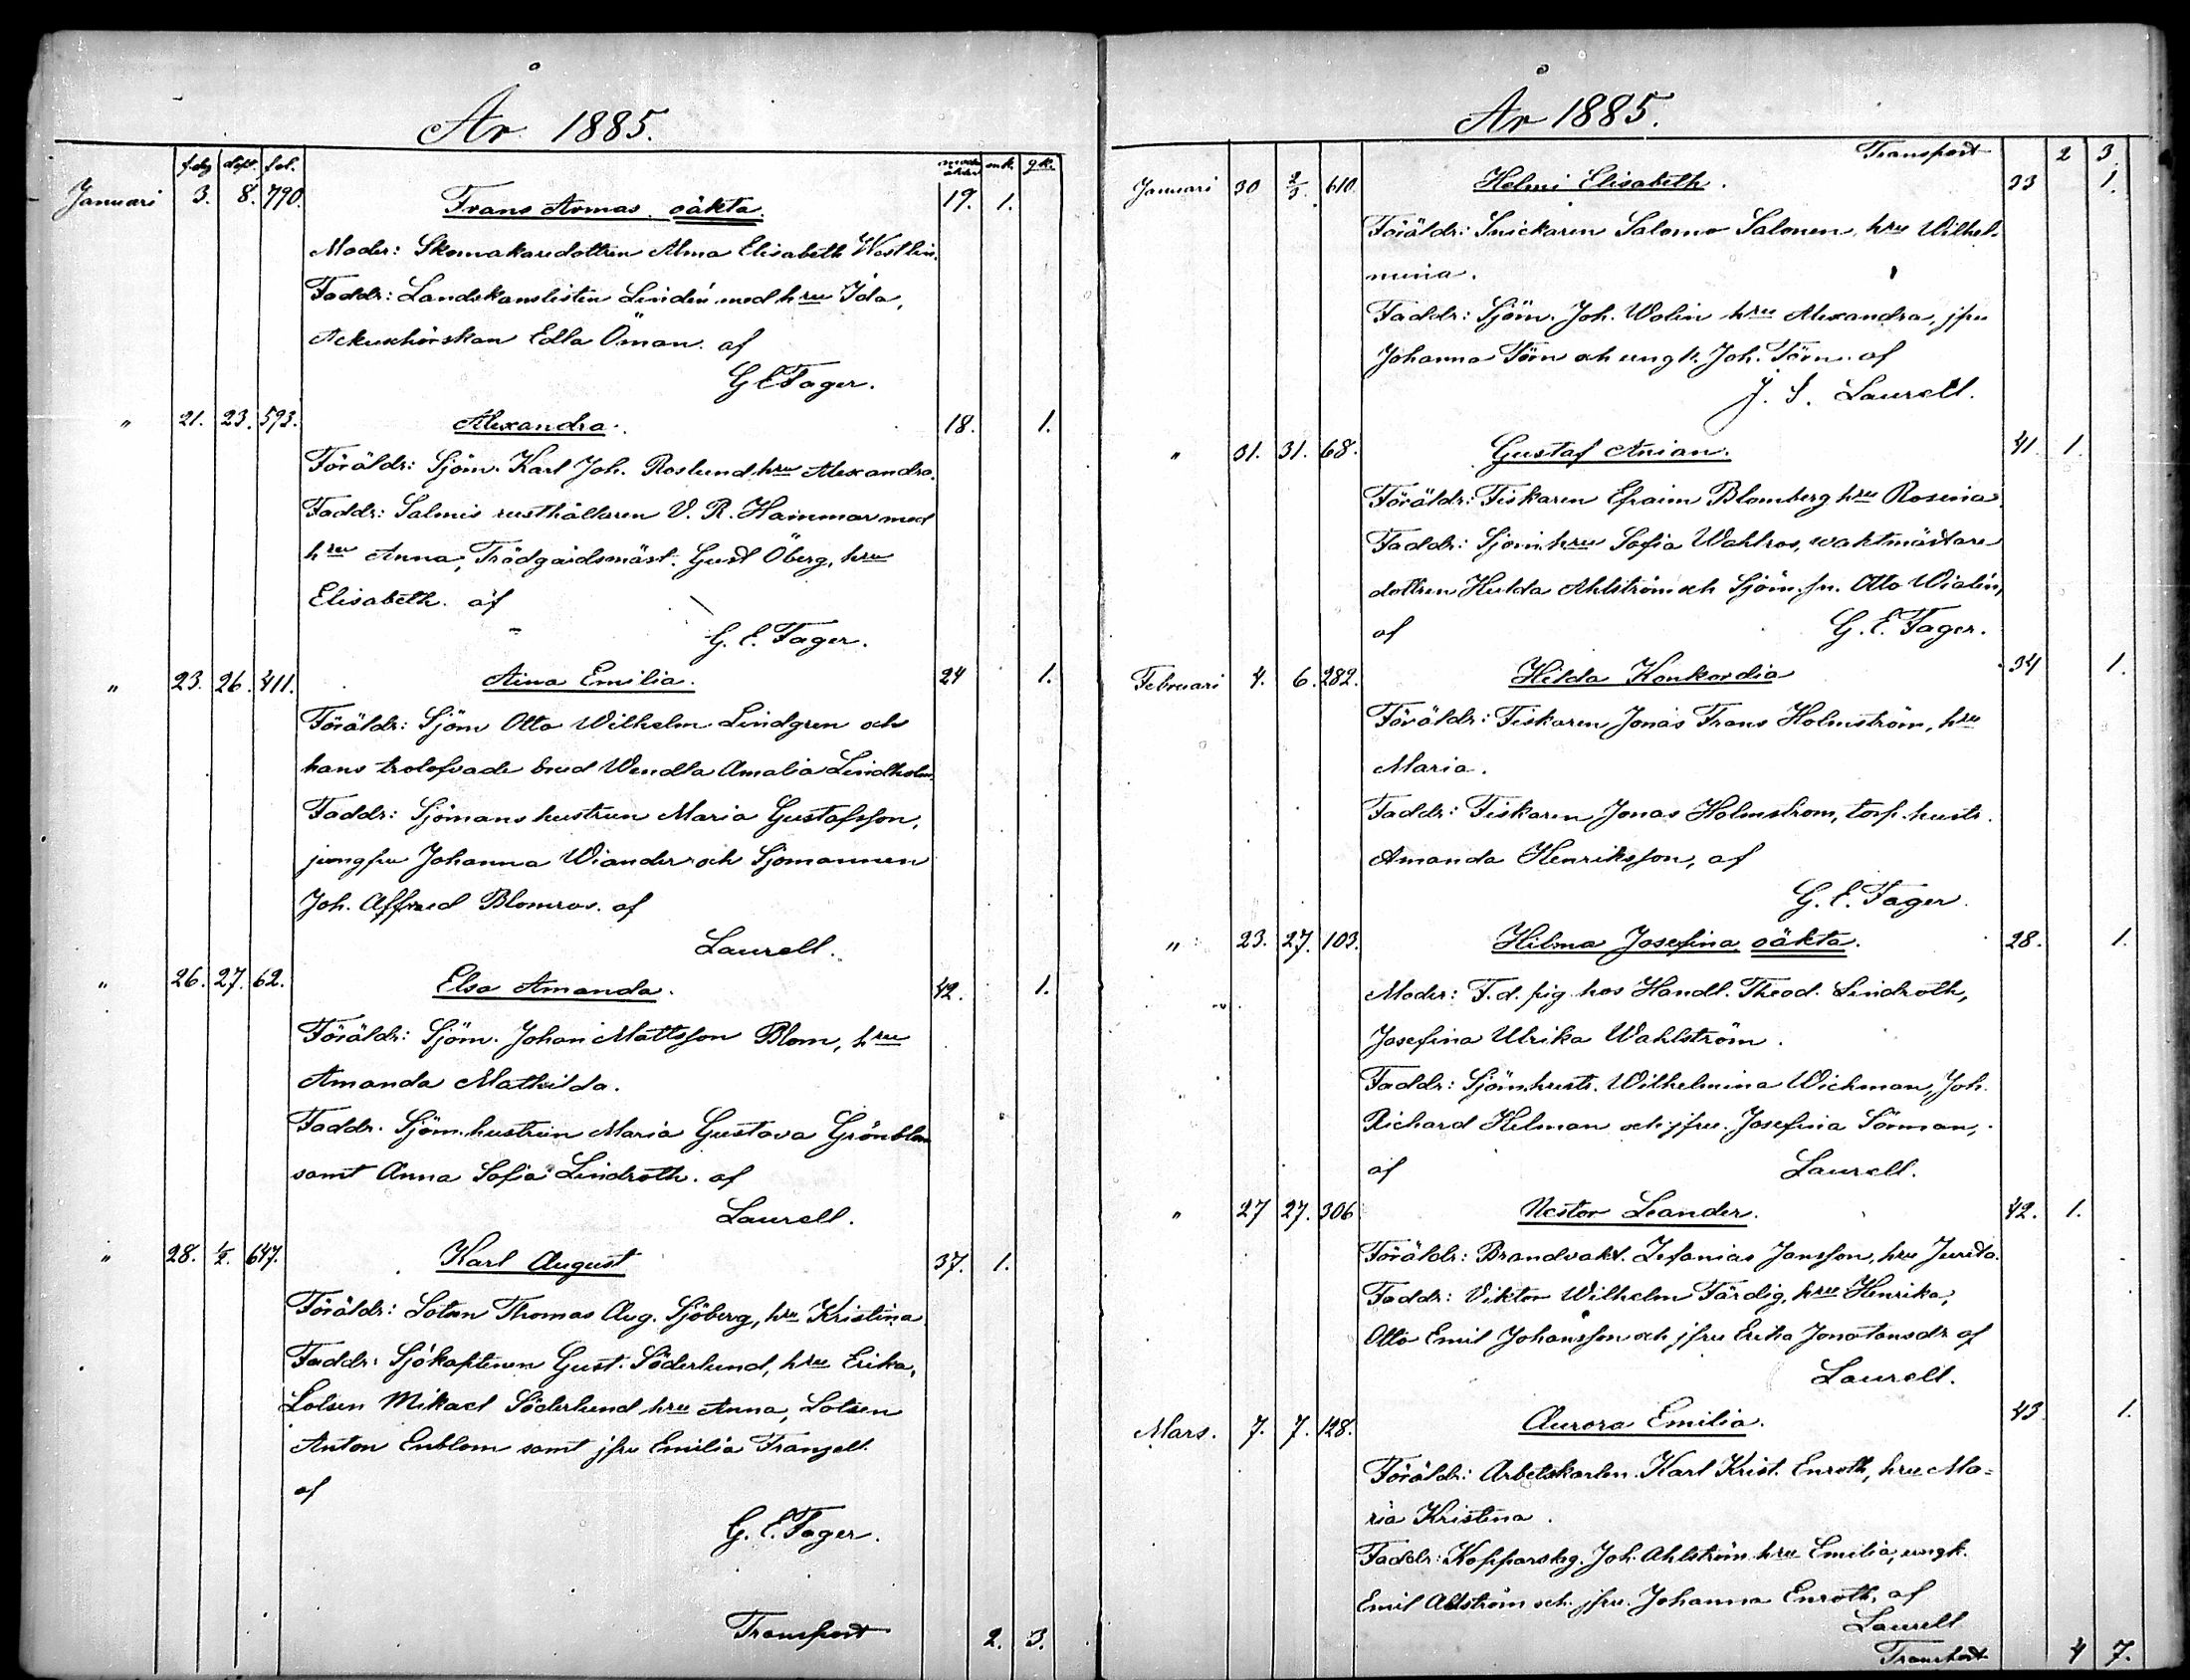 År 1885.
f.dg döpt. fol. mk. qk.
Januari 3. 8. 790. Frans Armas. oäkta. 19. 1.
Moder: Skomakaredottren Alma Elisabeth Westlin.
Faddr: Landskanslisten Lindén med hru Ida,
Ackuschörskan Edla Öman. af
G E Fager.
" 21. 23. 593. Alexandra. 18. 1.
Föräldr: Sjöm. Karl Joh. Roslund hru Alexandra.
Faddr: Salmis rusthållaren V. R. Hammar med
hru Anna, Trädgårdsmäst. Gust Öberg, hru
Elisabeth. af
G. E. Fager.
" 23. 26. 411. Aina Emilia. 24 1.
Föräldr: Sjöm Otto Wilhelm Lindgren och
hans trolofvade brud Wendla Amalia Lindholm.
Faddr: Sjömans hustrun Maria Gustafsson,
jungfru Johanna Wiander och Sjömannen
Joh. Alfred Blomros. af
Laurell.
" 26. 27. 62. Elsa Amanda. 42. 1.
Föräldr: Sjöm. Johan Mattsson Blom, hru
Amanda Mathilda.
Faddr. Sjöm. hustrun Maria Gustava Grönblom
samt Anna Sofia Lindroth. af
Laurell.
" 28. 1/2. 647. Karl August 37. 1.
Föräldr: Lotsen Thomas Aug. Sjöberg, hru Kristina
Faddr: Sjökaptenen Gust. Söderlund, hru Erika,
Lotsen Mikael Söderlund hru Anna, Lotsen
Anton Enblom samt jfru Emilia Franzell.
af
G. E. Fager.
Transport 2. 3.
År 1885.
Transport 2 3.
Januari 30 2/3. 610. Helmi Elisabeth. 33 1.
Föräldr: Snickaren Salomo Salonen, hru Wilhel-
mina.
Faddr: Sjöm. Joh. Wolin hru Alexandra, jfru
Johanna Törn och ungk. Joh. Törn. af
J. S. Laurell.
" 31. 31. 68. Gustaf Anian. 41. 1.
Föräldr: Fiskaren Efraim Blomberg hru Rosina.
Faddr: Sjöm. hru Sofia Wahlros, vaktmästare
dottren Hulda Ahlström och Sjöm. sn. Otto Wialén,
af G. E. Fager.
Februari 4. 6. 282. Hilda Konkordia 34 1.
Föräldr: Fiskaren Jonas Frans Holmström, hru
Maria.
Faddr: Fiskaren Jonas Holmström, torp. hustr.
Amanda Henriksson, af
G. E. Fager.
" 23. 27. 103. Hilma Josefina oäkta. 28. 1.
Moder: F.d. pig. hos Handl. Theod. Lindroth,
Josefina Ulrika Wahlström.
Faddr: Sjöm. hustr. Wilhelmina Wichman, Joh.
Richard Helman och jfru. Josefina Sörman,
af Laurell.
" 27 27. 306. Nestor Leander. 42. 1.
Föräldr: Brandvakt. Zefanias Jansson, hru Jurida.
Faddr: Viktor Wilhelm Färdig, hru Henrika,
Otto Emil Johansson och jfru Erika Jonatansdr af
Laurell.
Mars. 7. 7. 128. Aurora Emilia. 43 1.
Föräldr: Arbetskarlen Karl Krist. Enroth, hru Ma=
ria Kristina.
Faddr: Kopparslg. Joh. Ahlström hru Emilia, ungk.
Emil Ahlström och jfru. Johanna Enroth, af
Laurell
Transport 4 7.